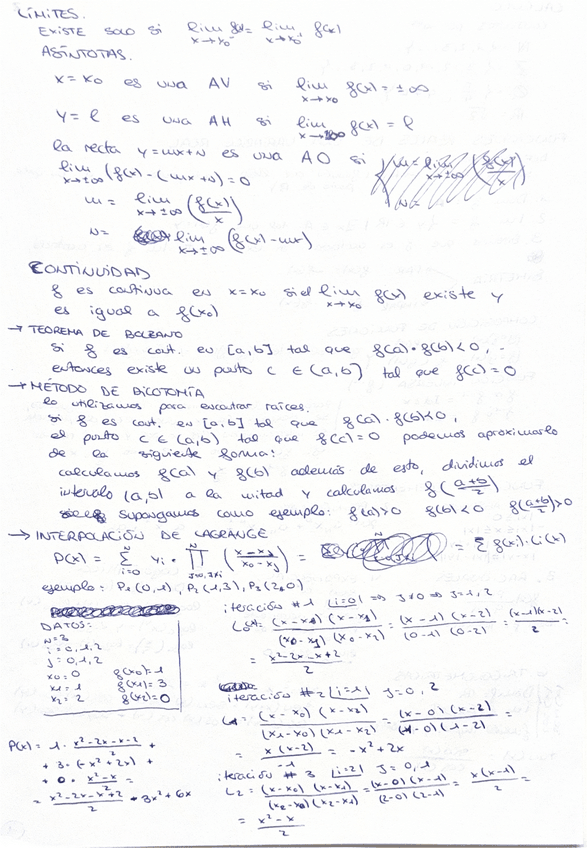 LÍMITES.
EXISTE solo si lim x→x₀⁻ f(x) = lim x→x₀⁺ f(x)
ASÍNTOTAS.
x = x₀ es una AV si lim x→x₀ f(x) = ±∞
y = l es una AH si lim x→±∞ f(x) = l
la recta y = mx+n es una AO si
lim x→±∞ (f(x) - (mx+n)) = 0
m = lim x→±∞ (f(x)/x)
n = lim x→±∞ (f(x) - mx)
CONTINUIDAD
f es continua en x = x₀ si el lim x→x₀ f(x) existe y
es igual a f(x₀)
→ TEOREMA DE BOLZANO
si f es cont. en [a,b] tal que f(a)·f(b) < 0,
entonces existe un punto c ∈ (a,b) tal que f(c) = 0
→ MÉTODO DE BICOTOMÍA
lo utilizamos para encontrar raíces.
si f es cont. en [a,b] tal que f(a)·f(b) < 0,
el punto c ∈ (a,b) tal que f(c) = 0 podemos aproximarlo
de la siguiente forma:
calculamos f(a) y f(b) además de esto, dividimos el
intervalo (a,b) a la mitad y calculamos f((a+b)/2)
supongamos como ejemplo: f(a)>0 f(b)<0 f((a+b)/2)>0
→ INTERPOLACIÓN DE LAGRANGE
P(x) = Σ i=0 N yᵢ · Π j=0, j≠i N ((x-xⱼ)/(x₀-xⱼ)) = Σ f(xᵢ)·Lᵢ(x)
ejemplo: P₁(0,1), P₂(1,3), P₃(2,0)
DATOS:
N=3
i = 0,1,2
j = 0,1,2
x₀ = 0 f(x₀) = 1
x₁ = 1 f(x₁) = 3
x₂ = 2 f(x₂) = 0
iteración #1 [i=0] ⇒ j≠0 ⇒ j=1,2
L₀ = (x-x₁)(x-x₂)/(x₀-x₁)(x₀-x₂) = (x-1)(x-2)/(0-1)(0-2) = (x-1)(x-2)/2 =
= (x²-2x-x+2)/2
iteración #2 [i=1] j=0,2
L₁ = (x-x₀)(x-x₂)/(x₁-x₀)(x₁-x₂) = (x-0)(x-2)/(1-0)(1-2) =
= x(x-2)/-1 = -x²+2x
iteración #3 [i=2] j=0,1
L₂ = (x-x₀)(x-x₁)/(x₂-x₀)(x₂-x₁) = (x-0)(x-1)/(2-0)(2-1) = x(x-1)/2 =
= (x²-x)/2
P(x) = 1·(x²-2x-x-2)/2 +
+ 3·(-x²+2x) +
+ 0·(x²-x)/2 =
= (x²-2x-x+2)/2 - 3x²+6x